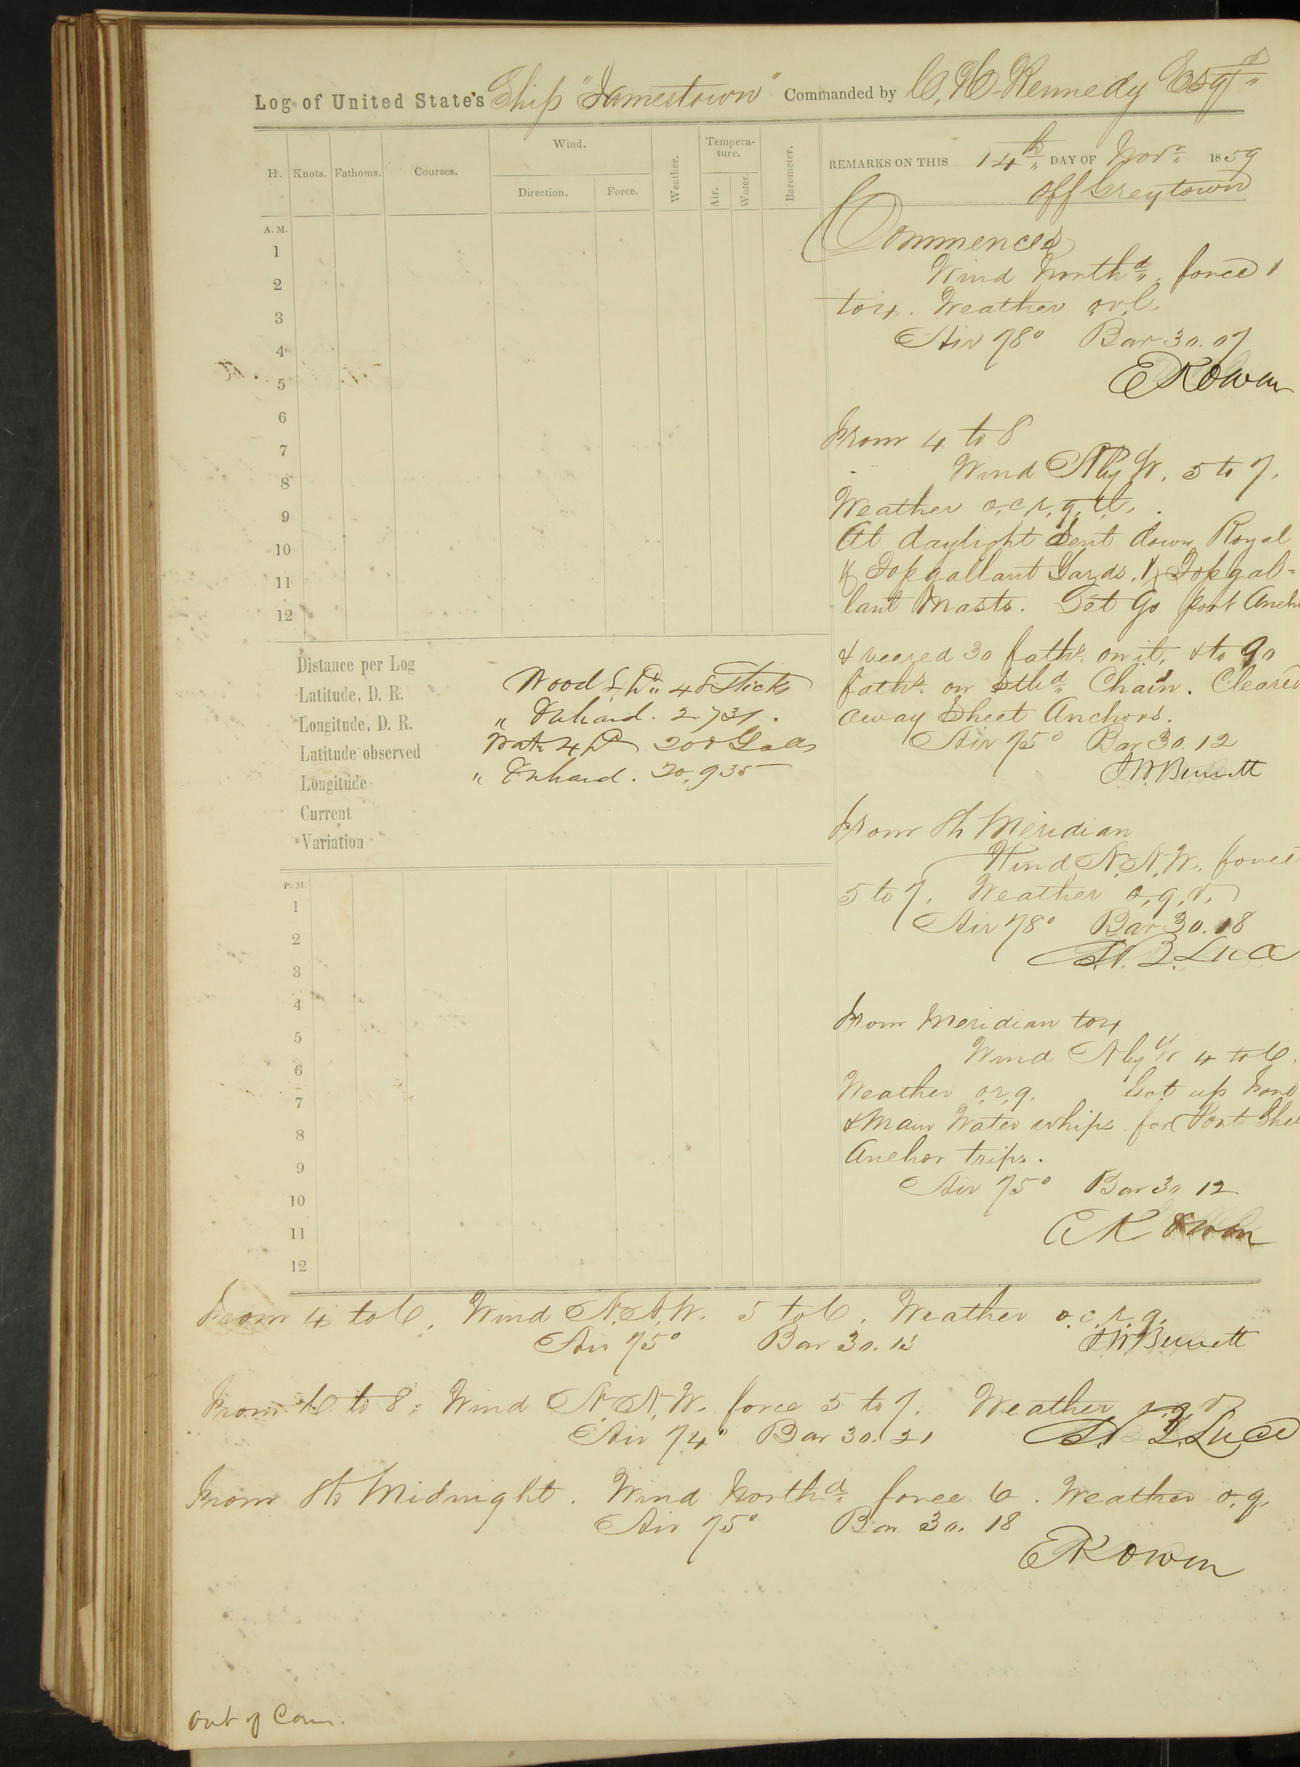 Log of United State's Ship "Jamestown" Commanded by C. H. Kennedy Esqr
H. Knots. Fathoms. Courses. Wind. Direction. Force. Weather. Tempera-ture. Air. Water. Barometer.
REMARKS ON THIS 14th DAY OF Novr 1859
off Greytown
A.M.
1
2
3
4
5
6
7
8
9
10
11
12
Commences
Wind Northd, force 1
to 4. Weather o.r.l.
Air 78° Bar 30.07
E K Owen
From 4 to 8
Wind N by W. 5 to 7.
Weather o.c.r.q.
At daylight Sent down Royal
& Topgallant Yards. & Topgal=
lant Masts. Let Go port Anch
& veered 30 faths. on it, & to 90
faths. on Stbd Chain. Cleared
away Sheet Anchors.
Air 75° Bar 30.12
J.W. Bennett
Distance per Log
Latitude, D. R.
Longitude, D. R.
Latitude observed
Longitude
Current
Variation
Wood Exd 48 Sticks
" On hand. 2731.
Watr Exd 208 Galls
" On hand. 20,935
From 8 to Meridian
Wind N.N.W. force
5 to 7. Weather o.q.r.
Air 78° Bar 30.18
S. B. Luce
P.M.
1
2
3
4
5
6
7
8
9
10
11
12
From Meridian to 4
Wind N by W 4 to 6.
Weather o.r.q. Got up Fore
& Main Water whips for Port Shee
Anchor trips.
Air 75° Bar 30.12
E K Owen
From 4 to 6, Wind N.N.W. 5 to 6. Weather o.c.r.q.
Air 75° Bar 30.13
J.W. Bennett
From 6 to 8: Wind N.N.W. force 5 to 7. Weather o.q.r.
Air 74° Bar 30.21 S. B. Luce
From 8 to Midnight. Wind Northd force 6. Weather o.q.
Air 75° Bar 30.18
E K Owen
out of Com.